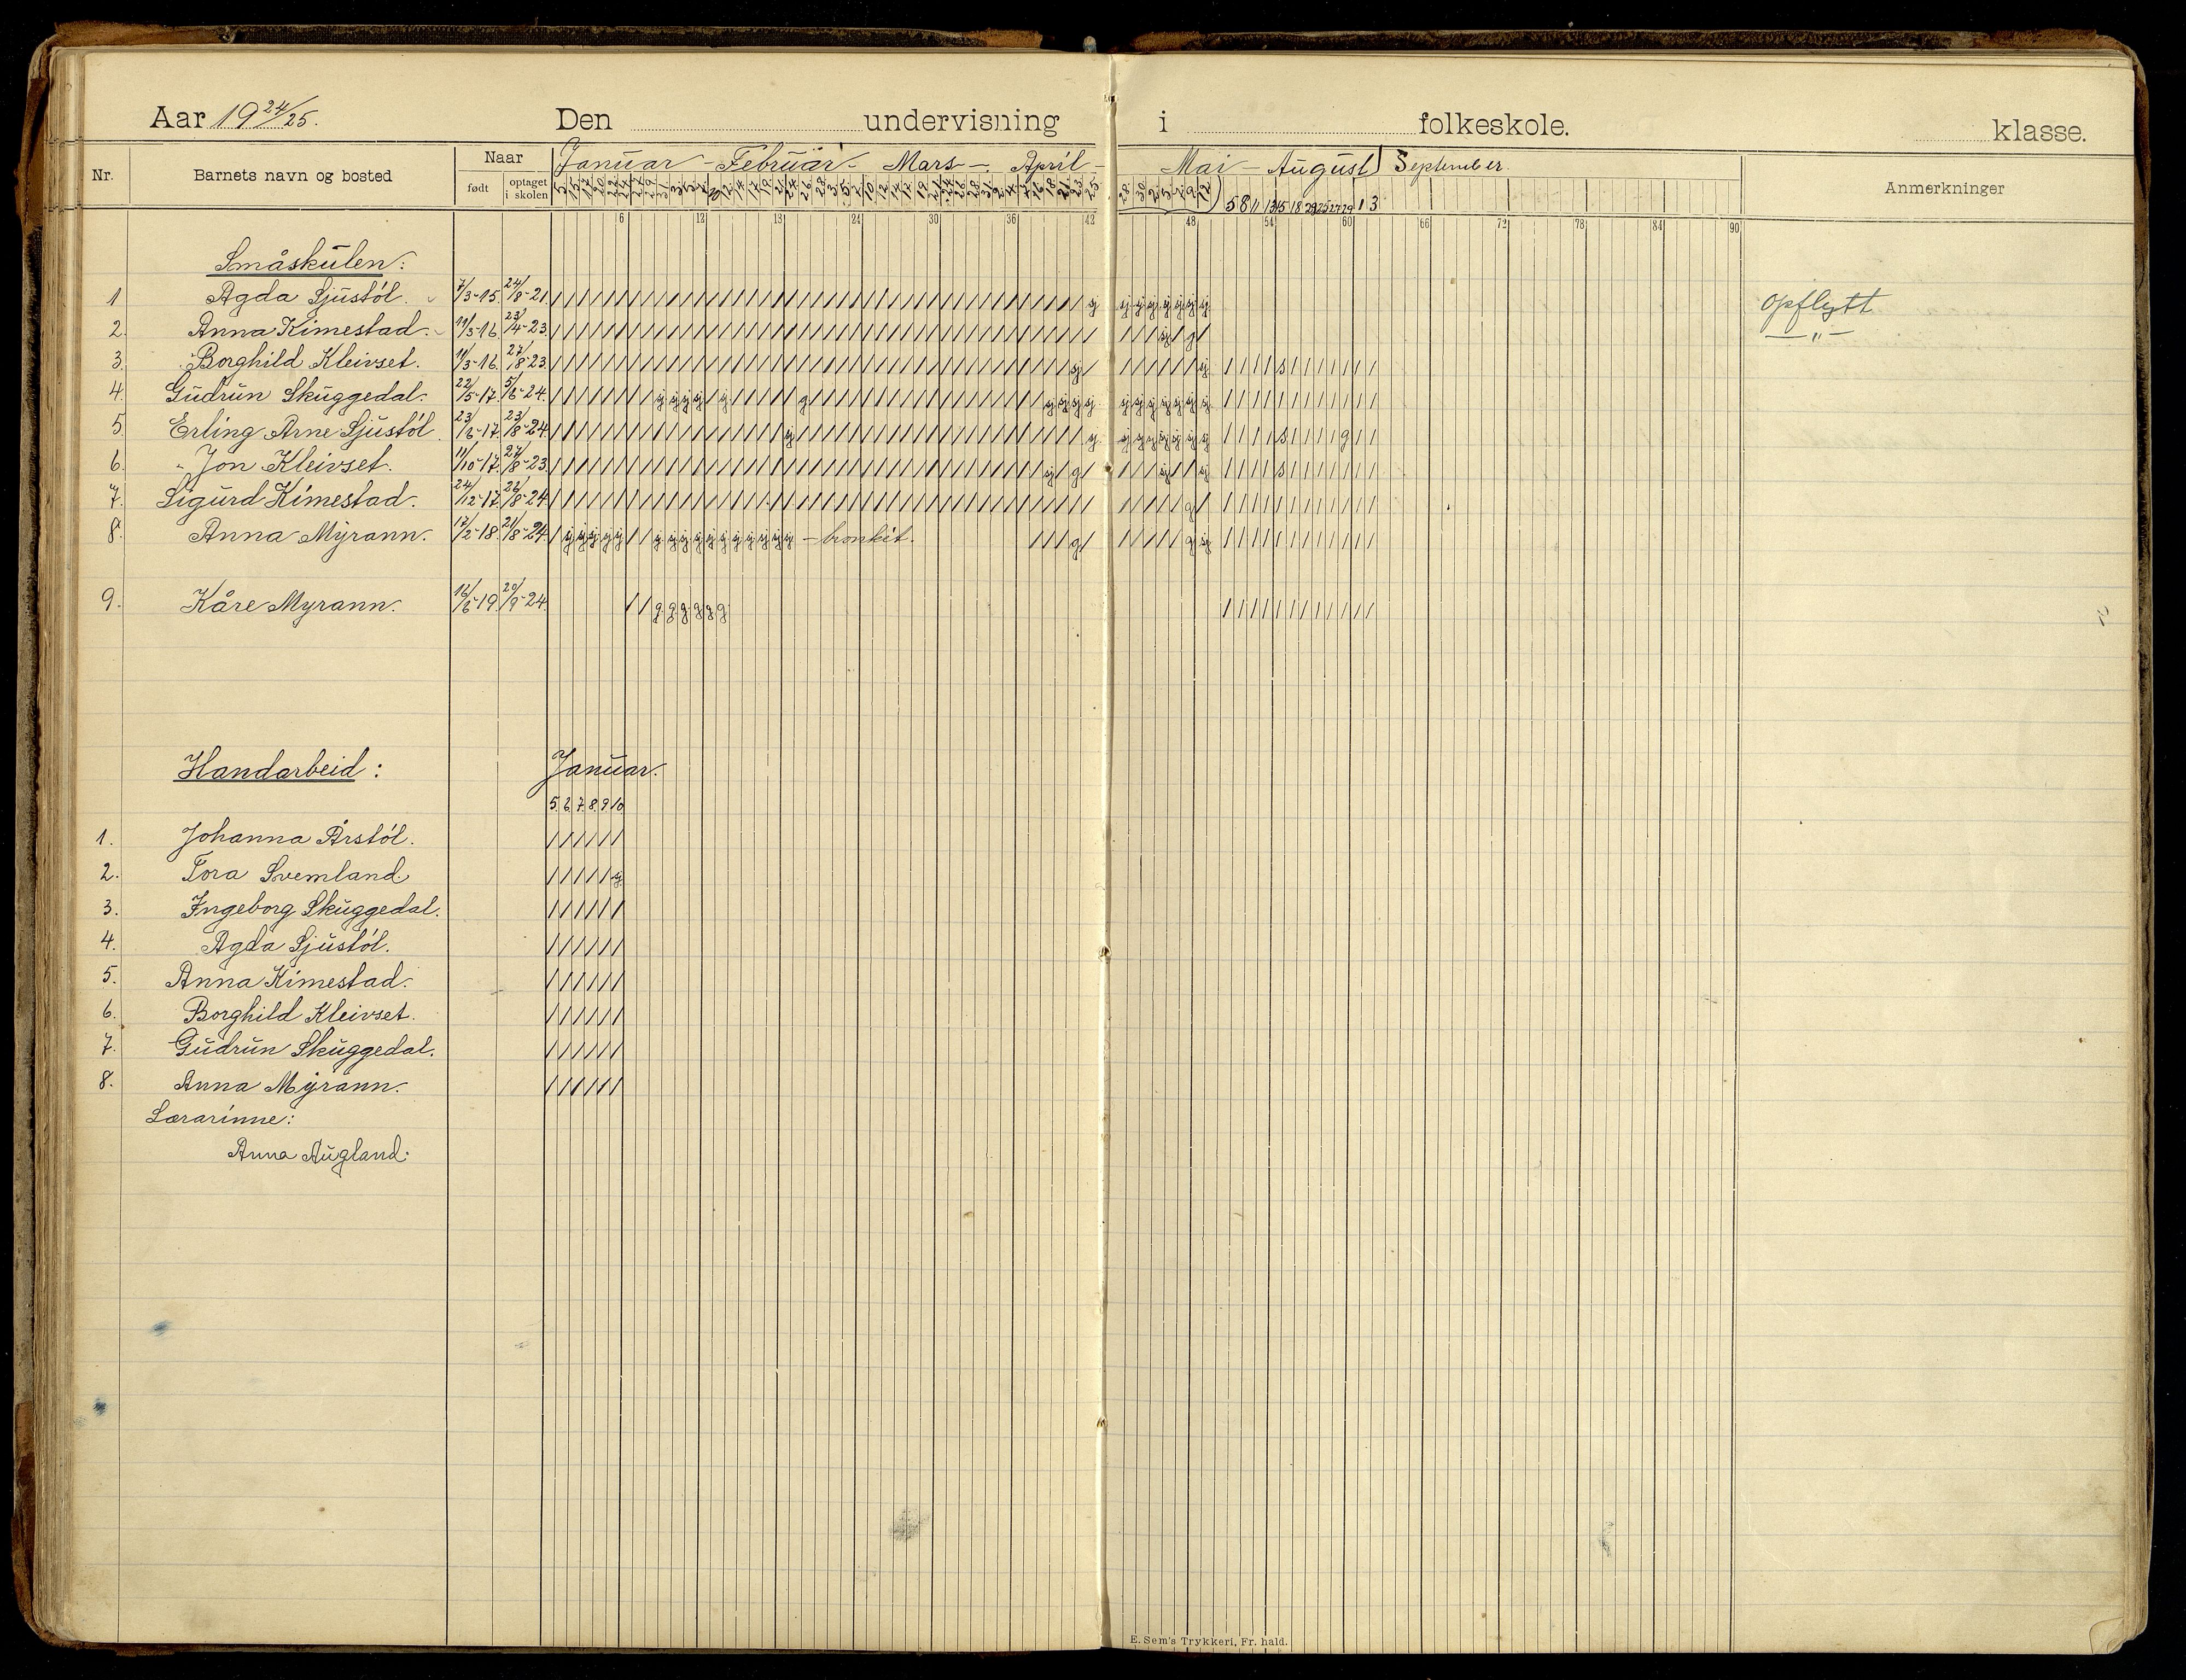 Aar 19 24/25. Den undervisning i folkeskole. klasse.
Nr. Barnets navn og bosted Naar født optaget i skolen Januar - Februar - Mars - April - Mai - August September. Anmerkninger
5 8 11 13 15 18 22 25 27 29 1 3
6 12 13 24 30 36 42 48 54 60 66 72 78 84 90
Småskulen:
1 Agda Sjustøl. 7/3-15. 24/8-21. opflytt
2. Anna Kimestad. 11/3-16 23/4-23. —"—
3. Borghild Kleivset. 11/3-16. 27/8-23.
4. Gudrun Skuggedal. 22/5-17. 5/6-24.
5. Erling Arne Sjustøl. 23/6-17. 23/8-24.
6. Jon Kleivset. 11/10-17. 27/8-23.
7. Sigurd Kimestad. 24/12-17. 22/8-24.
8. Anna Myrann. 17/2-18. 21/8-24. - bronkit.
9. Kåre Myrann. 16/6-19. 20/9-24.
Handarbeid: Januar.
5. 6. 7. 8. 9. 10
1. Johanna Årstøl.
2. Tora Svemland.
3. Ingeborg Skuggedal.
4. Agda Sjustøl.
5. Anna Kimestad.
6. Borghild Kleivset.
7. Gudrun Skuggedal.
8. Anna Myrann.
Lærarinne:
Anna Augland.
E. Sem's Trykkeri, Fr. hald.